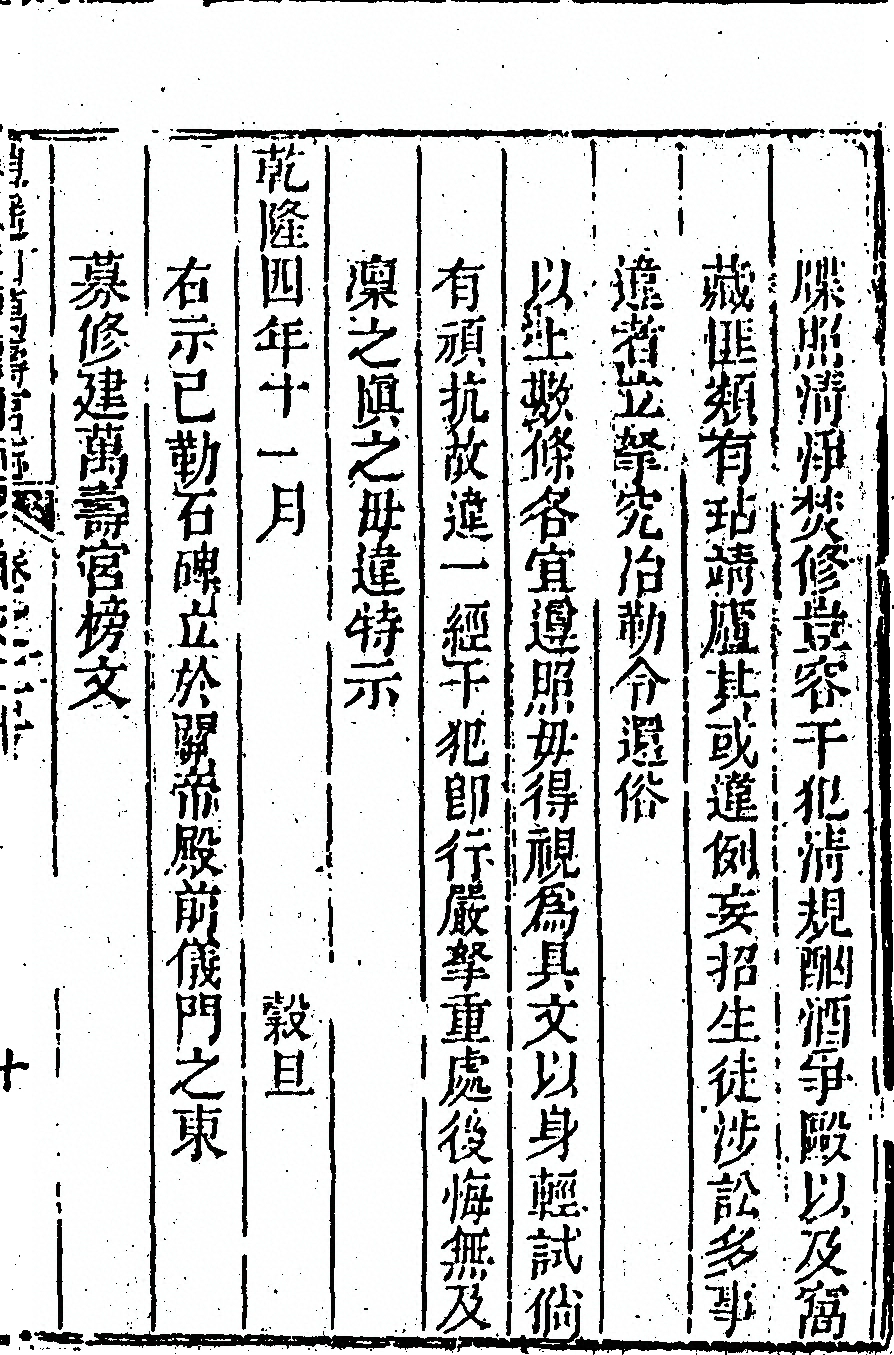 牒照清淨焚修豈容干犯清規酗酒爭毆以及窩
藏匪類有玷靖廬其或違例妄招生徒涉訟多事
違者並拏究治勒令還俗
以上數條各宜遵照毋得視為具文以身輕試倘
有頑抗故違一經干犯即行嚴拏重處後悔無及
凜之慎之毋違特示
乾隆四年十一月　穀旦
右示已勒石碑立於關帝殿前儀門之東
募修建萬壽宮榜文
逍遙山萬壽宮志
十